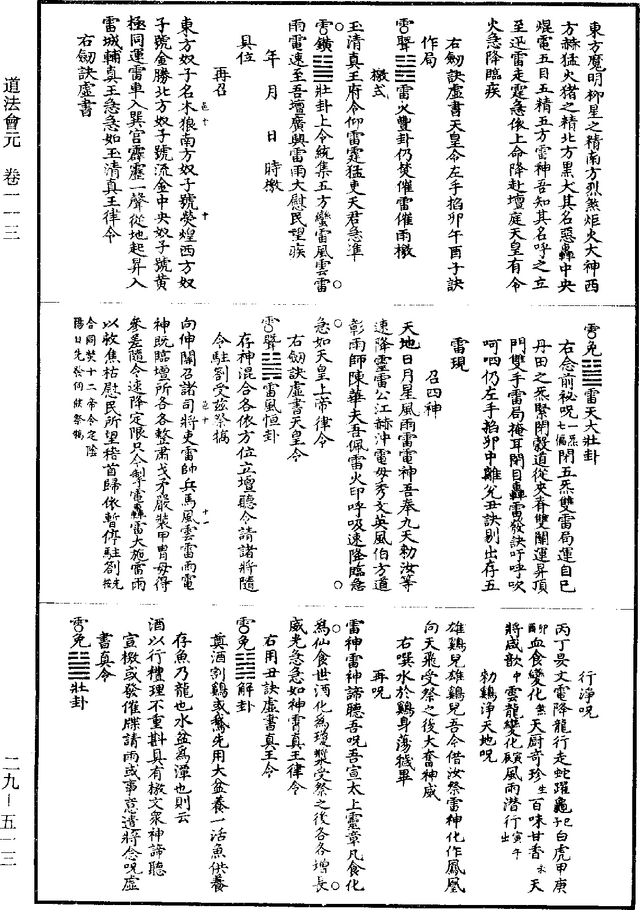 東方魔明柳星之精南方烈煞炬火大神西
方赫猛火猪之精北方黑犬其名惡轟中央
焜電五目五精五方雷神吾知其名呼之立
至迅雷走霆急依上命降赴壇庭天皇有令
火急降臨疾
右劒訣虛書天皇令左手掐卯午酉子訣
作局
雷火豐卦仍焚催雷催雨檄
檄式
玉清真王府令仰雷霆猛吏天君急準
壯卦上令統集五方蠻雷風雲雷
雨電速至吾壇廣興雷雨大慰民望疾
年 月 日 時檄
具位
再召
東方奴子名木狼南方奴子號熒煌西方奴
子號金勝北方奴子號流金中央奴子號黃
極同運雷車入巽宮霹靂一聲從地起昇入
雷城輔真王急急如玉清真王律令
右劒訣虛書
道法會元 卷一一三
雷天大壯卦
右念前秘呪七遍閉五炁雙雷局運自己
丹田之炁緊閉轂道從夾脊雙關運昇頂
門雙手雷局掩耳閉目轟雷發訣吁呼吹
呵呬仍左手掐卯中離兌丑訣剔出存五
雷現
召四神
天地日月星風雨雷電神吾奉九天勅汝等
速降靈雷公江赫沖電母秀文英風伯方道
彰雨師陳華夫吾佩雷火印呼吸速降臨急
急如天皇上帝律令
右劒訣虛書天皇令
雷風恒卦
存神混合各依方位立壇聽令請諸將隨
令駐劄受茲祭犒
向伸關召諸司將吏雷帥兵馬風雲雷雨電
神既臨壇所各各整肅戈矛嚴裝甲冑毋得
參差隨令速降定限只令掣電轟雷大施雷雨
以救焦枯慰民所望稽首歸依暫停駐劄
行淨呪
丙丁晏文電降龍行走蛇躍龜白虎甲庚
血食變化天厨奇珍百味甘香天
將咸歆中雲龍變化顛風雨潛行
勅鷄淨天地呪
雄鷄兒雄鷄兒吾今借汝祭雷神化作鳳凰
向天飛受祭之後大奮神威
右噀水於鷄身蕩穢畢
再呪
雷神雷神諦聽吾呪吾宣太上靈章凡食化
為仙食世酒化為瓊漿受祭之後各各增長
威光急急如神霄真王律令
右用丑訣虛書真王令
解卦
奠酒劄鷄或鵞先用大盆養一活魚供養
存魚乃龍也水盆為潭也則云
酒以行禮理不重斟具有檄文衆神諦聽
宣檄或發催牒請雨或事意遣將念呪虛
書真令
壯卦
二九-五一三